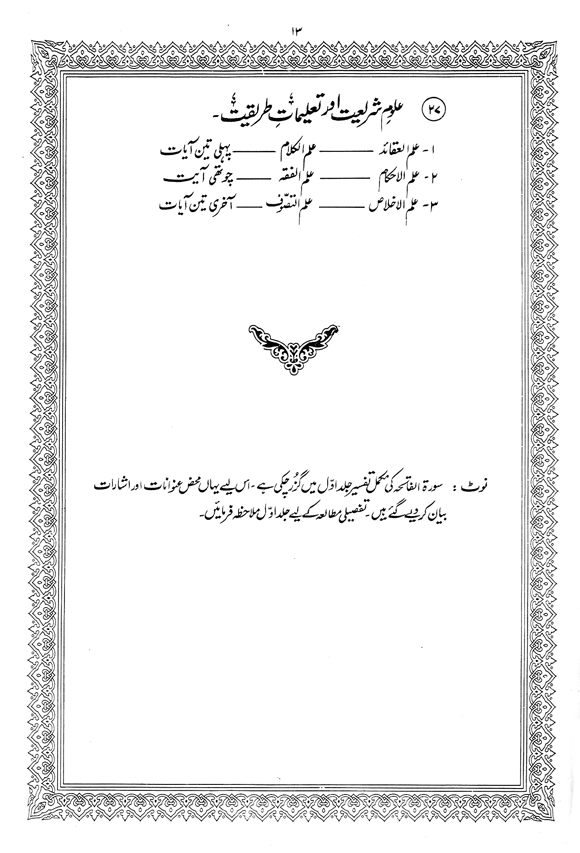 ۱۳
۲۷ علومِ شریعت اور تعلیماتِ طریقت۔
۱- علم العقائد ——— علم الکلام ——— پہلی تین آیات
۲- علم الاحکام ——— علم الفقہ ——— چوتھی آیت
۳- علم الاخلاص ——— علم التصوّف ——— آخری تین آیات
نوٹ : سورۃ الفاتحہ کی مکمل تفسیر جلد اوّل میں گزر چکی ہے۔ اس لیے یہاں محض عنوانات اور اشارات
بیان کر دیے گئے ہیں۔ تفصیلی مطالعہ کے لیے جلد اوّل ملاحظہ فرمائیں۔